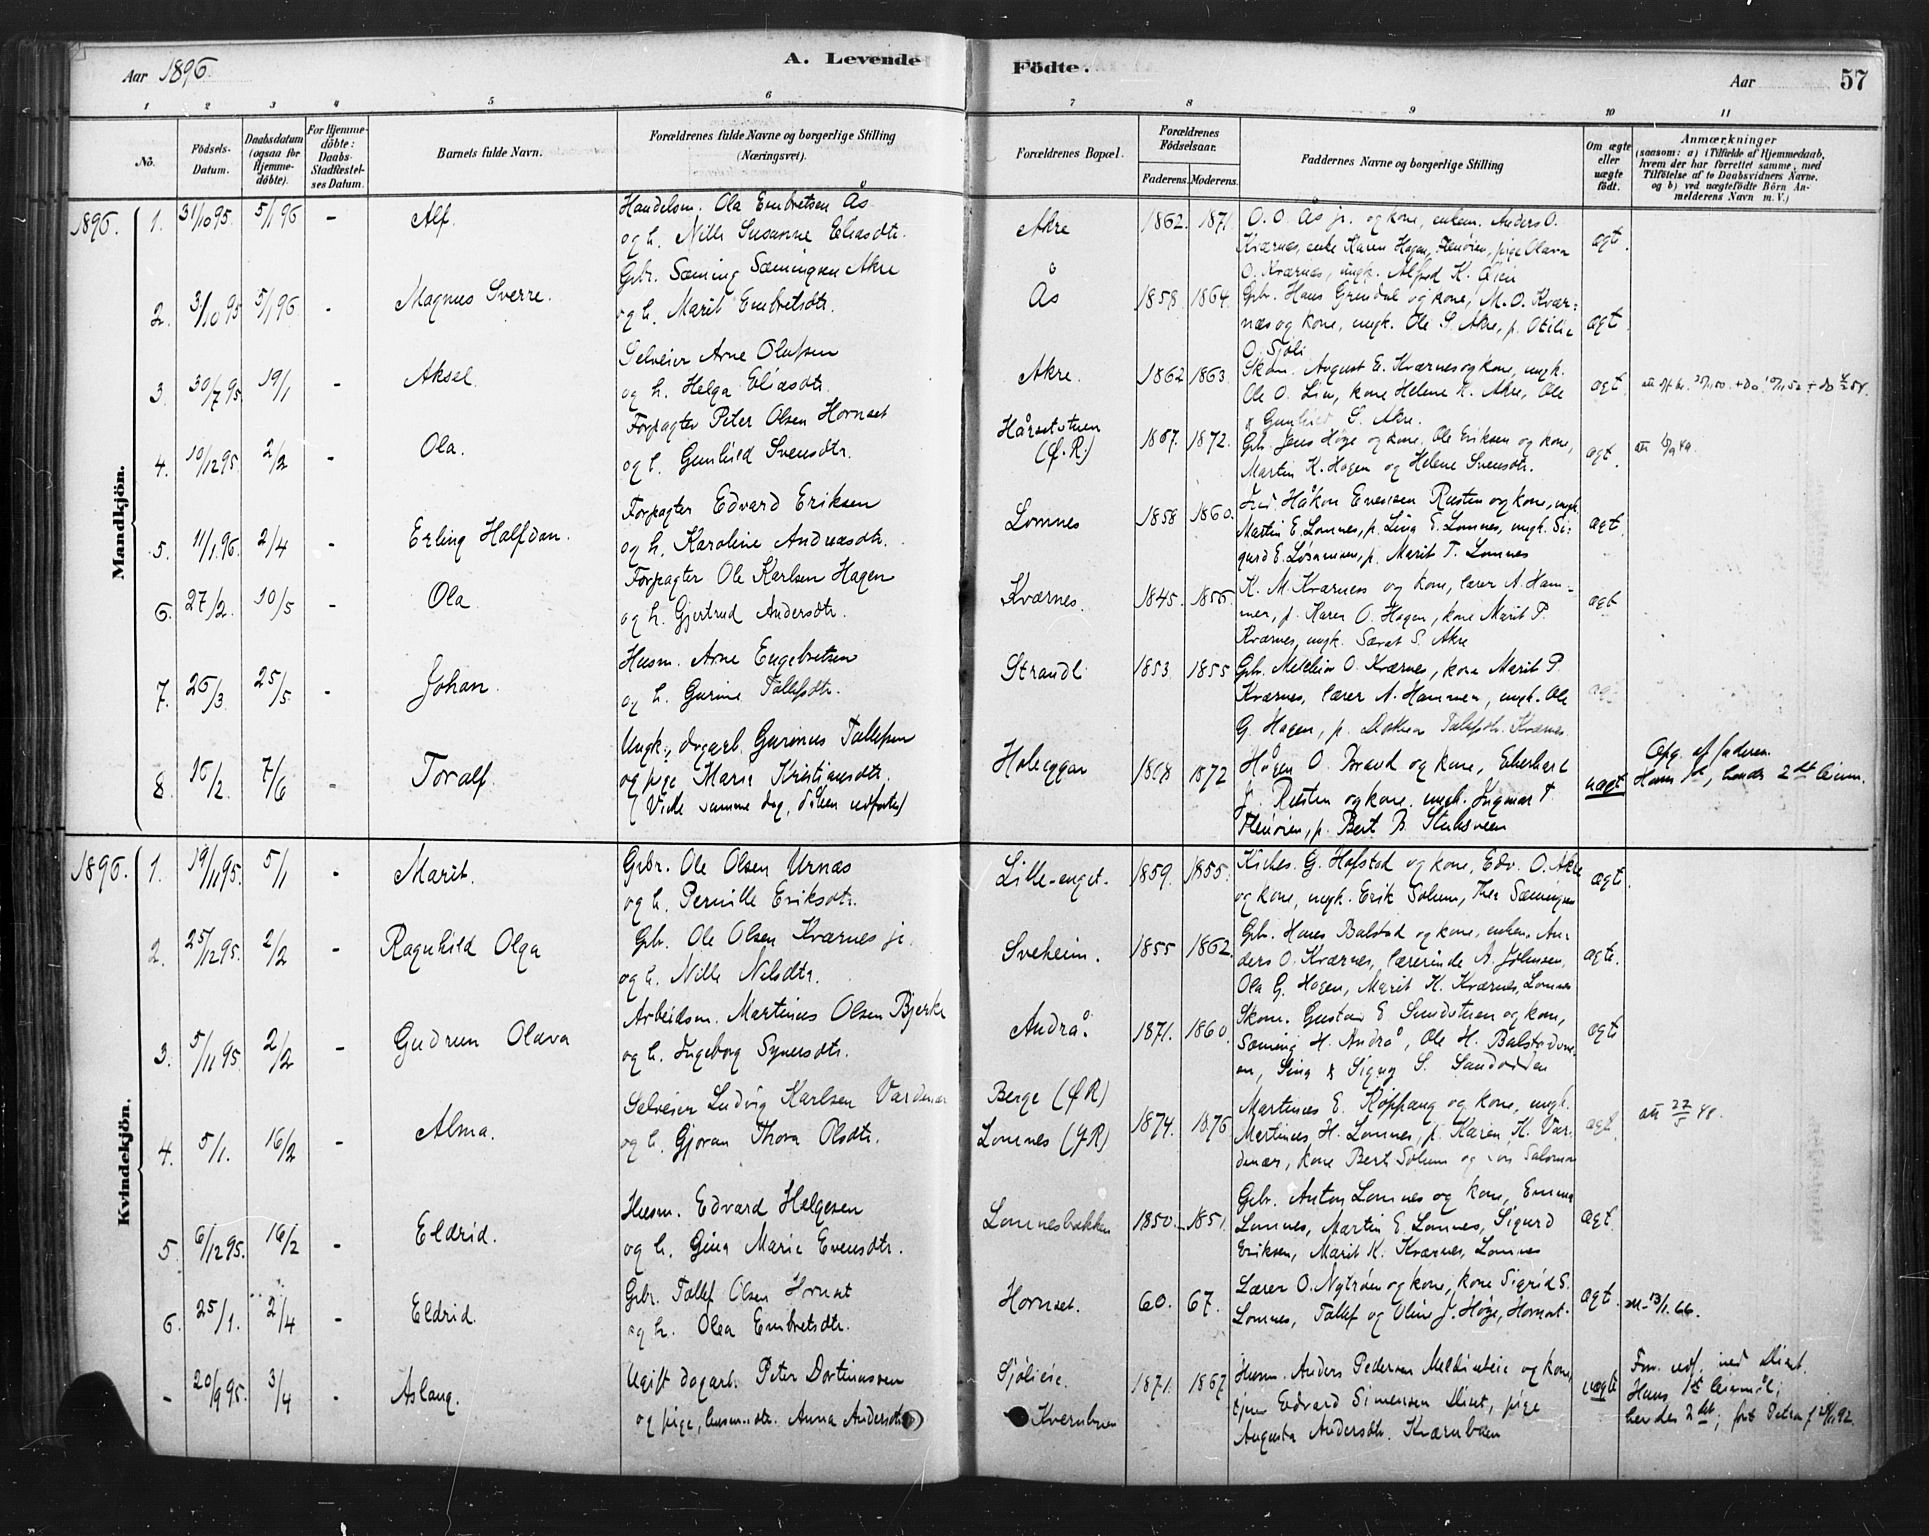 Aar 1896.
A. Levende Födte.
Aar 57
1 2 3 4 5 6 7 8 9 10 11
No.
Födsels-Datum.
Daabsdatum (ogsaa for Hjemme-döbte).
For Hjemme-döbte: Daabs-Stadfæstel-ses Datum.
Barnets fulde Navn.
Forældrenes fulde Navne og borgerlige Stilling (Næringsvei).
Forældrenes Bopæl.
Forældrenes Födselsaar.
Faderens. Moderens.
Faddernes Navne og borgerlige Stilling
Om ægte eller uægte födt.
Anmærkninger
(saasom: a) i Tilfælde af Hjemmedaab, hvem der har forrettet samme, med Tilföielse af to Daabsvidners Navne, og b) ved uægtefödte Börn An-melderens Navn m. V.)
Mandkjön.
1896. 1. 31/10 95 5/1 96 - Alf.
Handelsm. Ola Embretsen Ås
og h. Nille Susanne Eliasdtr.
Akre 1862. 1871
O. O. Ås jr. og kone, enkem. Anders O.
Kværnes, enke Karen Hagen, pige Olava
O. Kværnes, ungk. Alfred K.
ægt.
2. 3/10 95 5/1 96 - Magnus Sverre.
Gbr. Sæming Sæmingsen Akre
og h. Marit Embretsdtr.
Ås 1858. 1864.
Gbr. Hans Grendal og kone, M. O. Kvær-
næs og kone, ungk. Ole S. Akre, p. Otilie
O. Sjøli
ægt
3. 30/7 95 19/1 - Aksel.
Selveier Arne Olufsen
og h. Helga Eliasdtr.
Akre. 1862 1863.
Skom. August E. Kværnes og kone, ungk.
Ole O. Lie, kone Helene K. Akre, Ole
& Gunhild S. Akre.
ægt.
4. 10/12 95. 2/2 - Ola.
Forpagter Peter Olsen Hornset
og h. Gunhild Svensdtr.
Hårsetstuen
(Ø.R.)
1867. 1872.
Gbr. Jens Høye og kone, Ole Eriksen og kone,
Martin K. Hagen og Helene Svensdtr.
ægt.
5. 11/1 96. 2/4 - Erling Halfdan.
Forpagter Edvard Eriksen
og h. Karoline Andreasdtr.
Lomnes 1858 1860.
Håkon Evensen Risten og kone, ungk
Martin E. Lomnes, p. Lina E. Lomnes, ungk. Si-
gurd E. p. Marit T. Lomnes
ægt.
6. 27/2. 10/5 - Ola
Forpagter Ole Karlsen Hagen
og h. Gjertrud Andersdtr.
Kværnes. 1845. 1856.
K. M. Kværnes og kone, lærer A. Ham-
mer, p. Karen O. Hagen, kone Marit P.
Kværnes, ungk. S. Akre
ægt
7. 26/3. 25/5. - Johan.
Husm. Arne Engebretsen
og h. Gurine Tollefsdtr.
Strandli 1853 1855
Gbr. Melchior O. Kværnes, kone Marit P.
Kværnes, lærer A. Hammer, ungk. Ole
G. Hagen, p. Tollefsdtr. Kværnes
8. 16/2. 7/6 - Toralf.
Ungk., dagarb. Gurinus Tollefsen
og pige Marie Kristiansdtr.
(Viede samme dag, siden udførte)
1868 1872
Hågen O. Bravd og kone, Eberhart
J. Risten og kone, ungk. Ingmar T
p. Bert B. Stubsveen
uægt
Opg. af faderen.
Hans 1st, hendes 2det leierm.
Kvindekjön.
1896. 1. 19/11 95. 5/1 - Marit.
Gbr. Ole Olsen Urnæs
og h. Pernille Eriksdtr.
Lille-enget. 1859. 1855.
Kirkes. G. Hofstad og kone, Edv. O. Akre
og kone, ungk. Erik Solum, Thea Sæmingsen
ægte.
2. 25/12 95. 2/2 - Ragnhild Olga
Gbr. Ole Olsen Kværnes jr.
og h. Nille Nilsdtr.
Sveheim. 1855 1862.
Gbr. Hans Balstad og kone, enkem. An-
ders O. Kværnes, lærerinde A. Johnsen,
Ola G. Hagen, Marit K. Kværnes, Lomnes
ægte.
3. 5/11 95. 2/2 - Gudrun Olava
Arbeidsm. Martinus Olsen Bjerke
og h. Ingeborg Synersdtr.
Andrå. 1871. 1860.
Skom. Gustav E. Sundstuen og kone,
Sæming H. Andrå, Ole H.
en, Lina & Signy S. Sandodden
ægt
4. 5/1. 16/2 - Alma.
Selveier Ludvig Karlsen Vardenær
og h. Gjøran Thora Olsdtr.
Berge (ØR)
Lomnes (YR)
1874. 1876
Martines E. Koppang og kone, ungk.
Martines H. Lomnes, p. Karen K. Var-
denær, kone Bert Solum og Salomon
ægt.
5. 6/12 95. 16/2 - Eldrid.
Husm. Edvard Helgesen
og h. Gina Marie Evensdtr.
Lomnesbakken 1850. 1851.
Gbr. Anton Lomnes og kone, Emma
Lomnes, Martin E. Lomnes, Sigurd
Eriksen, Marit K. Kværnes, Lomnes
ægt.
6. 25/1. 2/4 - Eldrid.
Gbr. Tollef Olsen Hornset
og h. Olea Embretsdtr.
Hornset. 60. 67.
Lærer O. Nytrøen og kone, kone Sigrid S.
Lomnes, Tollef og Oline J. Høye, Hornset.
ægt.
13/1. 66.
- 20/9 95. 3/4 - Aslaug.
Ugift dagarb. Peter Dortinussen
og pige, husm.dtr. Anna Andersdtr.
Sjølieie.
Kværnbuen
1871. 1867
Husm. Anders Pedersen og kone,
Edvard Simensen Diset, pige
Augusta Andersdtr. Kværnbuen
uægte
For. udf. ved Diset.
Hans 1st leiermål;
hendes 2det; født Petra f 28/11 92.